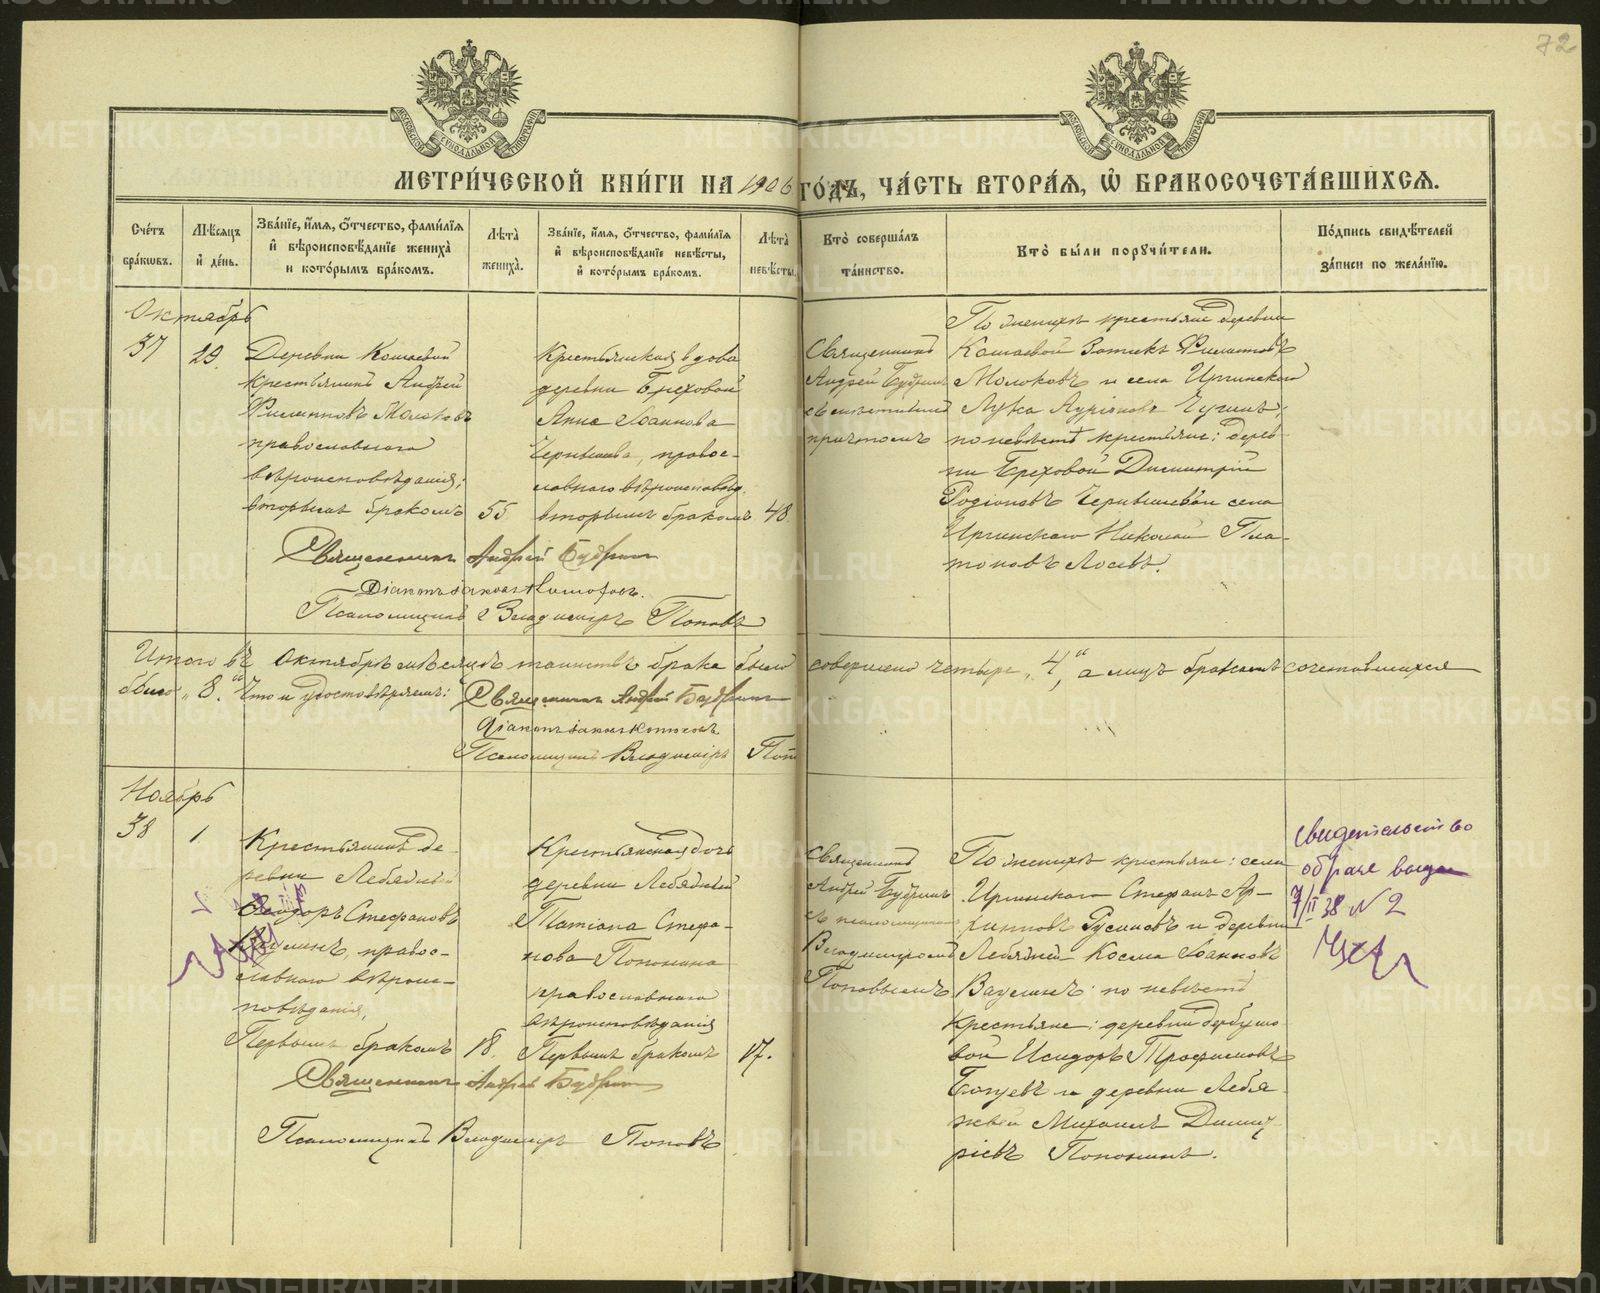 72
МЕТРИ́ЧЕСКОЙ КНИ́ГИ НА 1906 ГО́ДЪ, ЧА́СТЬ ВТОРА́Я, Ѡ҆ БРАКОСОЧЕТА́ВШИХСЯ.
Сче́тъ бра́кωвъ.
Мѣ́сяцъ и҆ де́нь.
Зва́нїе, и҆́мя, ѻ҆́тчество, фами́лїя и҆ вѣроисповѣ́данїе жениха̀ и кото́рымъ бра́комъ.
Лѣ́та жениха̀.
Зва́нїе, и҆́мя, ѻ҆́тчество, фами́лїя и҆ вѣроисповѣ́данїе невѣ́сты, и҆ кото́рымъ бра́комъ.
Лѣ́та невѣ́сты.
Кто̀ соверша́лъ та́инство.
Кто̀ бы́ли порꙋчи́тели.
По́дпись свидѣ́телей за́писи по жела́нїю.
Октябрь
37
29.
Деревни Кошаевой
крестьянинъ Андрей
Филипповъ Молоковъ
православнаго
вѣроисповѣданія;
вторымъ бракомъ
55
Крестьянская вдова
деревни Бреховой
Анна Іоаннова
Чернышева, правос-
лавнаго вѣроисповѣд.
вторымъ бракомъ
48
Священникъ
Андрей Будринъ
причтомъ
По женихѣ крестьяне деревни
Кошаевой Зотикъ Филипповъ
Молоковъ и села Иргинскаго
Лука
по невѣстѣ крестьяне: дерев-
ни Бреховой Димитрій
Родіоновъ Чернышевъ и села
Иргинскаго Николай Пла-
тоновъ Лосевъ.
Священникъ Андрей Будринъ
Діаконъ
Псаломщикъ Владиміръ Поповъ
Итого въ Октябрѣ мѣсяцѣ таинствъ брака было совершено четыре „4", а лицъ бракомъ сочетавшихся
было „8". Что и удостовѣряемъ: Священникъ Андрей Будринъ
Діаконъ
Псаломщикъ Владиміръ Поп
Ноябрь
38
1
Крестьянинъ де-
ревни Лебяжьей
Ѳеодоръ Стефановъ
правос-
лавнаго вѣроис-
повѣданія,
Первымъ бракомъ
18.
Крестьянская дочь
деревни Лебяжьей
Татіана Стефа-
нова Попонина
православнаго
вѣроисповѣданія
Первымъ бракомъ
17.
Священникъ
Андрей Будринъ
съ псаломщикомъ
Владиміромъ
Поповымъ
По женихѣ крестьяне: села
Иргинскаго Стефанъ Ар-
Русиновъ и деревни
Лебяжьей Косма Іоанновъ
Ваулинъ: по невѣстѣ
крестьяне: деревни
Исидоръ Трофимовъ
и деревни Лебя-
жьей Михаилъ Димит-
ріевъ Попонинъ.
свидетельство
о браке выда
7/II 38 № 2
Священникъ Андрей Будринъ
Псаломщикъ Владиміръ Поповъ
METRIKI.GASO-URAL.RU